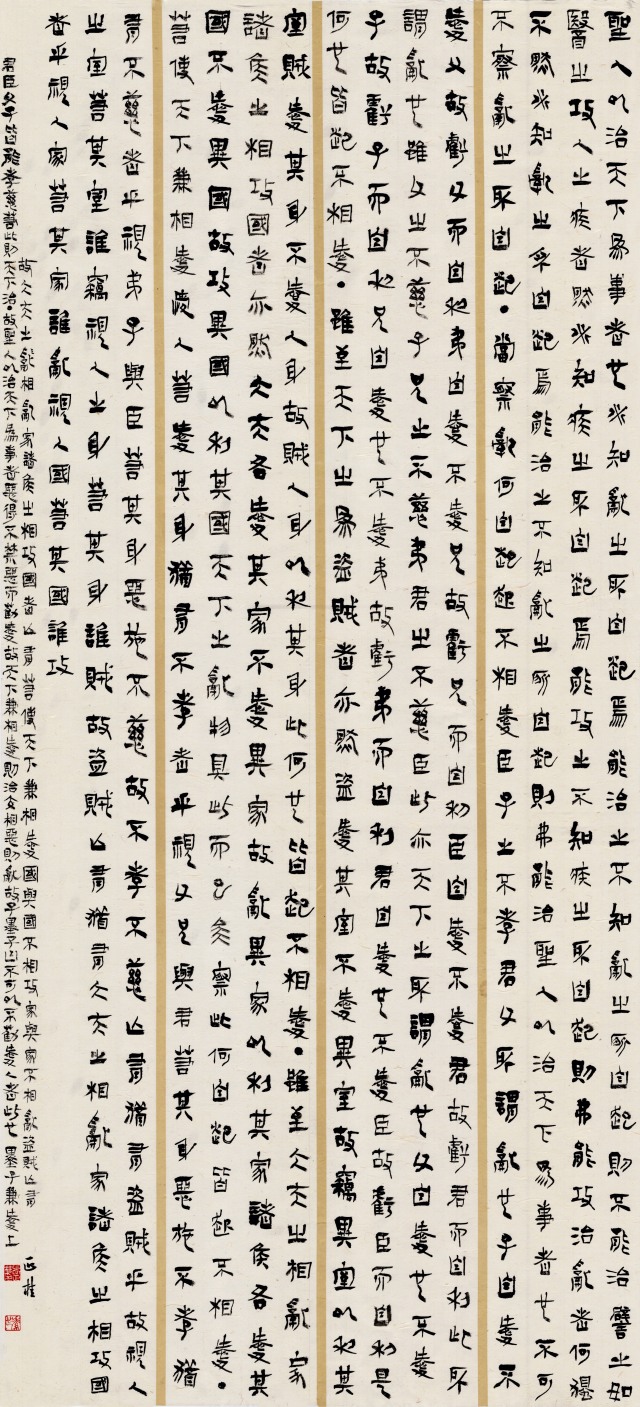 聖人以治天下爲事者也知亂之所自起焉能治之不知亂之所自起則不能治譬之如
醫之攻人之疾者然必知疾之所自起焉能攻之不知疾之所自起則弗能攻治亂者何獨
不然必知亂之所自起焉能治之不知亂之所自起則弗能治聖人以治天下爲事者也不可
不察亂之所自起・當察亂何自起起不相愛臣子之不孝君父所謂亂也子自愛不
愛父故虧父而自利弟自愛不愛兄故虧兄而自利臣自愛不愛君故虧君而自利此所
謂亂也雖父之不慈子兄之不慈弟君之不慈臣此亦天下之所謂亂也父自愛也不愛
子故虧子而自利兄自愛也不愛弟故虧弟而自利君自愛也不愛臣故虧臣而自利是
何也皆起不相愛・雖至天下之爲盜賊者亦然盜愛其室不愛異室故竊異室以利其
室賊愛其身不愛人身故賊人身以利其身此何也皆起不相愛・雖至大夫之相亂家
諸侯之相攻國者亦然大夫各愛其家不愛異家故亂異家以利其家諸侯各愛其
國不愛異國故攻異國以利其國天下之亂物具此而已矣察此何自起皆起不相愛・
若使天下兼相愛愛人若愛其身猶有不孝者乎視父兄與君若其身惡施不孝猶
有不慈者乎視弟子與臣若其身惡施不慈故不孝不慈亡有猶有盜賊乎故視人
之室若其室誰竊視人之身若其身誰賊故盜賊亡有猶有大夫之相亂家諸侯之相攻國
者乎視人家若其家誰亂視人國若其國誰攻
故大夫之亂相亂家諸侯之相攻國者亡有若使天下兼相愛國與國不相攻家與家不相亂盜賊亡有
君臣父子皆能孝慈若此則天下治故聖人以治天下爲事者惡得不禁惡而勸愛故天下兼相愛則治交相惡則亂故子墨子曰不可以不勸愛人者此也 墨子兼愛上